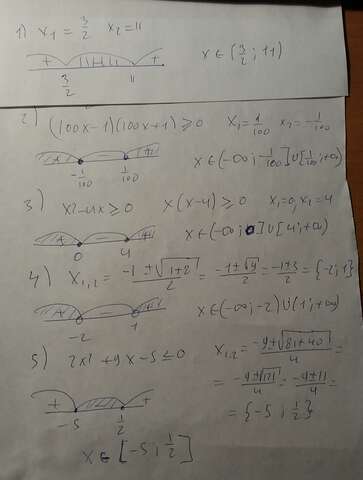 1) x₁ = 3/2 x₂ = 11
+ - +
3/2 11
x ∈ (3/2 ; 11)
2) (100x-1)(100x+1) ≥ 0 x₁ = 1/100 x₂ = -1/100
+ - +
-1/100 1/100
x ∈ (-∞ ; -1/100] ∪ [1/100 ; +∞)
3) x² - 4x ≥ 0 x(x-4) ≥ 0 x₁ = 0, x₂ = 4
+ - +
0 4
x ∈ (-∞ ; 0] ∪ [4 ; +∞)
4) x₁,₂ = (-1 ± √(1+8))/2 = (-1 ± √9)/2 = (-1 ± 3)/2 = {-2 ; 1}
+ - +
-2 1
x ∈ (-∞ ; -2) ∪ (1 ; +∞)
5) 2x² + 9x - 5 ≤ 0 x₁,₂ = (-9 ± √(81+40))/4 =
= (-9 ± √121)/4 = (-9 ± 11)/4 =
= {-5 ; 1/2}
+ - +
-5 1/2
x ∈ [-5 ; 1/2]